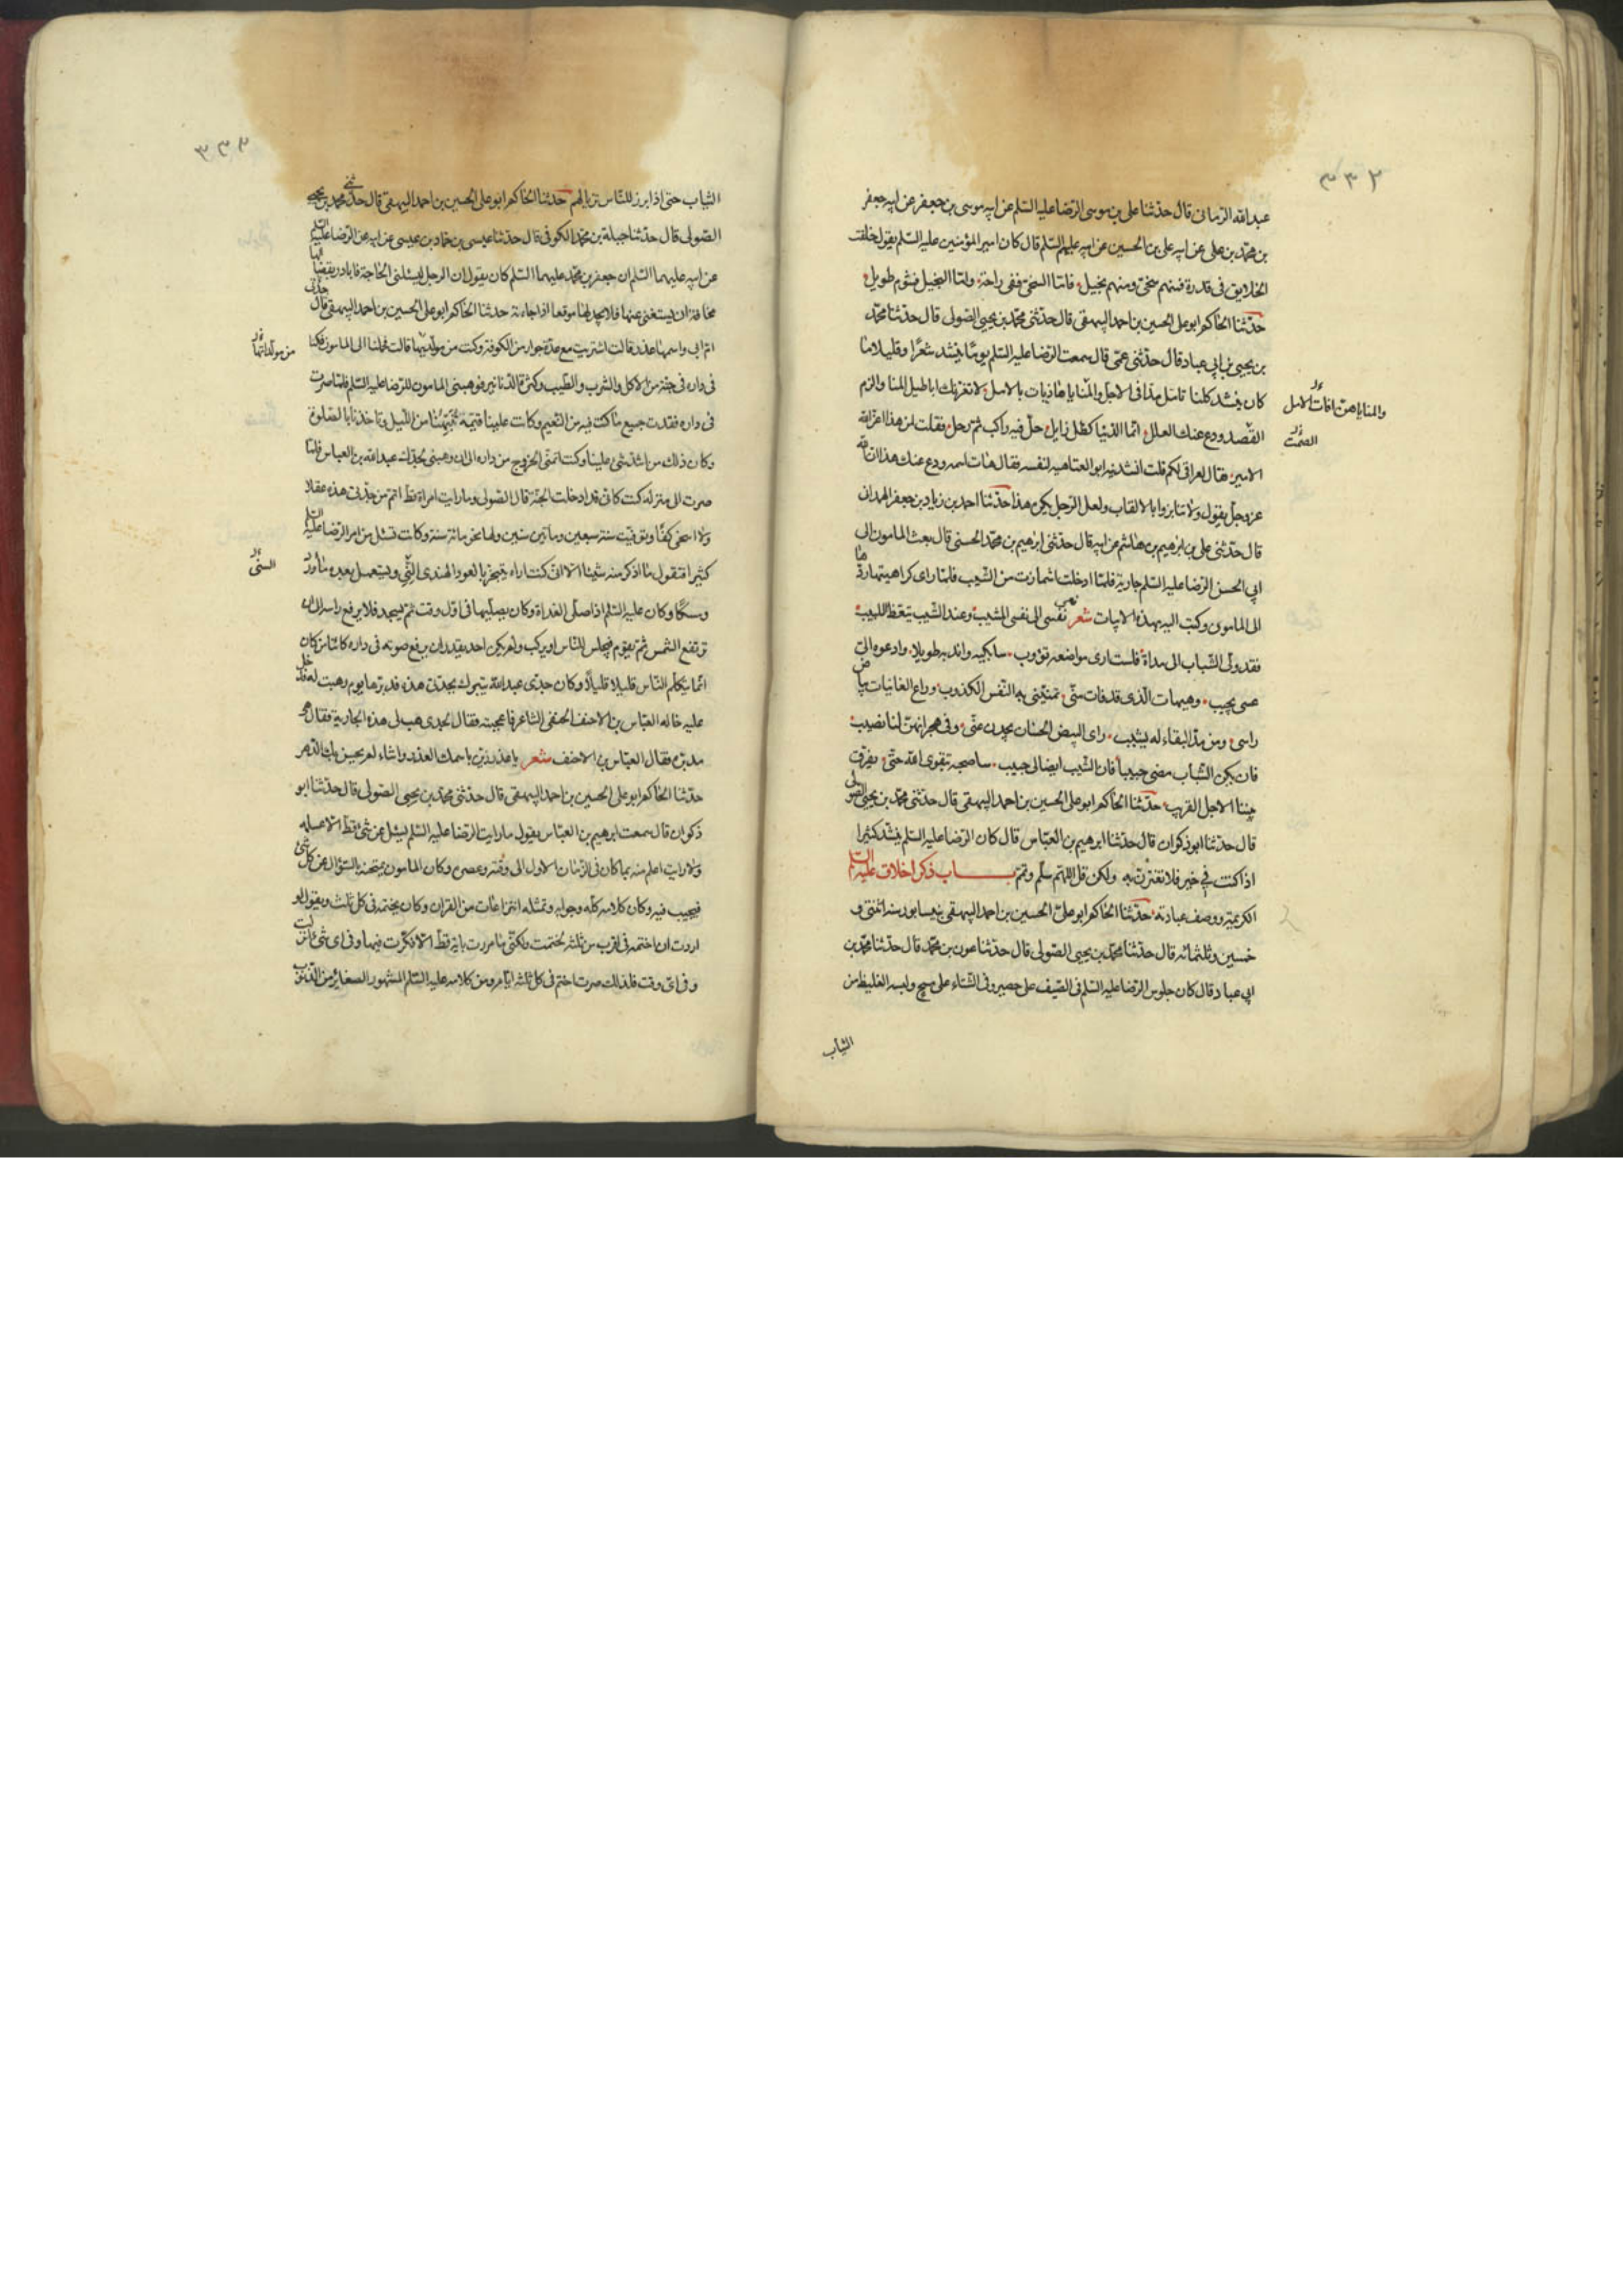 ٣٣٢
عبدالله الرمانى قال حدثنا على بن موسى الرضا عليه السلم عن ابيه موسى بن جعفر عن ابيه جعفر
بن محمد بن على عن ابيه على بن الحسين عن ابيه عليهم السلم قال كان امير المؤمنين عليه السلم يقول خلقت
الخلايق فى قدرة فمنهم سخى ومنهم بخيل فاما السخى ففى راحة واما البخيل فشوم طويل
حدثنا الحاكم ابو على الحسين بن احمد البيهقى قال حدثنى محمد بن يحيى الصولى قال حدثنا محمد
بن يحيى بن ابى عباد قال حدثنى عمى قال سمعت الرضا عليه السلم يوما ينشد شعرا وقليلا ما
كان ينشد كلنا نامل مدا فى الاجل والمنايا هاذيات بالامل لا تغرنك اباطيل المنا والزم
والمنايا هن افات الامل
القصد ودع عنك العلل انما الدنيا كظل زايل حل فيه راكب ثم رحل فقلت لمن هذا اعز الله
الصمت
الامير فقال لعراقى لكم قلت انشدنيه ابو العتاهيه لنفسه فقال هات اسمه ودع عنك هذا ان الله
عز وجل يقول ولا تنابزوا بالالقاب ولعل الرجل يكره هذا حدثنا احمد بن زياد بن جعفر الهمدانى
قال حدثنى على بن ابرهيم بن هاشم عن ابيه قال حدثنى ابرهيم بن محمد الحسنى قال بعث المامون الى
ابى الحسن الرضا عليه السلم جارية فلما ادخلت اشمازت من الشيب فلما راى كراهيتها ردها
الى المامون وكتب اليه بهذه الابيات شعر نعى نفسى الى نفسى المشيب وعند الشيب يتعظ اللبيب
فقد ولى الشباب الى مداه فلست ارى مواضعه تؤوب سابكيه واندبه طويلا وادعوه الى
عسى يجيب وهيهات الذى قد فات منى تمنينى به النفس الكذوب وراع الغانيات بياض
راسى ومن مد البقاء له يشيب ارى البيض الحسان يحدن عنى وفى هجرانهن لنا نصيب
فان يكن الشباب مضى حبيبا فان الشيب ايضا لى حبيب ساصحبه بتقوى الله حتى يفرق
بيننا الاجل القريب حدثنا الحاكم ابو على الحسين بن احمد البيهقى قال حدثنى محمد بن يحيى الصولى
قال حدثنا ابو ذكوان قال حدثنا ابرهيم بن العباس قال كان الرضا عليه السلم ينشد كثيرا
اذا كنت فى خير فلا تغترر به ولكن قل اللهم سلم وتمم باب ذكر اخلاق عليه السلم
الكريمة ووصف عبادته حدثنا الحاكم ابو على الحسين بن احمد البيهقى بنيسابور سنه اثنتى و
خمسين وثلثمائه قال حدثنا محمد بن يحيى الصولى قال حدثنا عون بن محمد قال حدثنا محمد بن
ابى عباد قال كان جلوس الرضا عليه السلم فى الصيف على حصير وفى الشتاء على مسح ولبسه الغليظ من
الثياب
٣٣٣
الثياب حتى اذا برز للناس تزيا لهم حدثنا الحاكم ابو على الحسين بن احمد البيهقى قال حدثنى محمد بن يحيى
الصولى قال حدثنا جبلة بن محمد الكوفى قال حدثنا عيسى بن حماد بن عيسى عن ابيه عن الرضا عليه السلم
عن ابيه عليهما السلم ان جعفر بن محمد عليهما السلم كان يقول ان الرجل ليسئلنى الحاجة فابادر بقضائها
مخافة ان يستغنى عنها فلا يجد لها موقعا اذا جاءته حدثنا الحاكم ابو على الحسين بن احمد البيهقى قال حدثتنى
ام ابى واسمها عذر قالت اشتريت مع عدة جوار من الكوفة وكنت من مولديها قالت فحملنا الى المامون فكنا
من مولداتها
فى داره فى جنة من الاكل والشرب والطيب وكثرة الدنانير فوهبنى المامون للرضا عليه السلم فلما صرت
فى داره فقدت جميع ما كنت فيه من النعيم وكانت علينا قيمة تنبهنا من الليل وتاخذنا بالصلوة
وكان ذلك من اشد شى علينا وكنت اتمنى الخروج من داره الى ان وهبنى لجدك عبدالله بن العباس فلما
صرت الى منزله كنت كانى قد ادخلت الجنة قال الصولى وما رايت امراة قط اتم من جدتى هذه عقلا
ولا اسخى كفا وتوفيت سنة سبعين ومأتين سنين ولها نحو مائة سنة وكانت تسئل من امر الرضا عليه السلم
كثيرا فتقول ما اذكر منه شيئا الا انى كنت اراه يتبخر بالعود الهندى النى ويستعمل بعده ماورد
السنى
ومسكا وكان عليه السلم اذا صلى الغداة وكان يصليها فى اول وقت ثم يسجد فلا يرفع راسه الى ان
ترتفع الشمس ثم يقوم فيجلس للناس او يركب ولم يكن احد يقدر ان يرفع صوته فى داره كائنا من كان
انما يتكلم الناس قليلا قليلا وكان جدى عبدالله يتبرك بجدتى هذه فدبرها يوم وهبت له فدخل
عليه خاله العباس بن الاحنف الحنفى الشاعر فاعجبته فقال لجدى هب لى هذه الجارية فقال هى
مدبرة فقال العباس بن الاحنف شعر يا عذر زين باسمك العذر واساء لم يحسن بك الدهر
حدثنا الحاكم ابو على الحسين بن احمد البيهقى قال حدثنى محمد بن يحيى الصولى قال حدثنا ابو
ذكوان قال سمعت ابرهيم بن العباس يقول ما رايت الرضا عليه السلم يسئل عن شئ قط الا علمه
ولا رايت اعلم منه بما كان فى الزمان الاول الى وقته وعصره وكان المامون يمتحنه بالسؤال عن كل شئ
فيجيب فيه وكان كلامه كله وجوابه وتمثله انتزاعات من القران وكان يختمه فى كل ثلث ويقول لو
اردت ان اختمه فى اقرب من ثلثه لختمت ولكنى ما مررت باية قط الا فكرت فيها وفى اى شئ انزلت
وفى اى وقت فلذلك صرت اختم فى كل ثلثه ايام ومن كلامه عليه السلم المشهور الصغاير من الذنوب